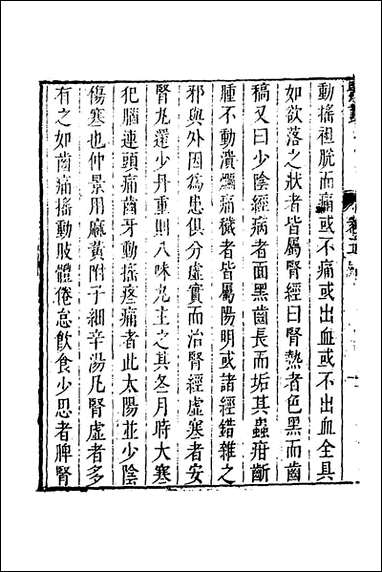 動搖袒脫而痛或不痛或出血或不出血全具
如欲落之狀者皆屬腎經曰腎熱者色黑而齒
稿又曰少陰經病者面黑齒長而垢其蟲疳斷
腫不動潰爛痛穢者皆屬陽明或諸經錯雜之
邪與外因為患俱分虛實而治腎經虛寒者安
腎丸還少丹重則八味丸主之其冬月時大寒
犯腦連頭痛齒牙動搖疼痛者此太陽並少陰
傷寒也仲景用麻黃附子細辛湯凡腎虛者多
有之如齒痛搖動肢體倦怠飲食少思者脾腎